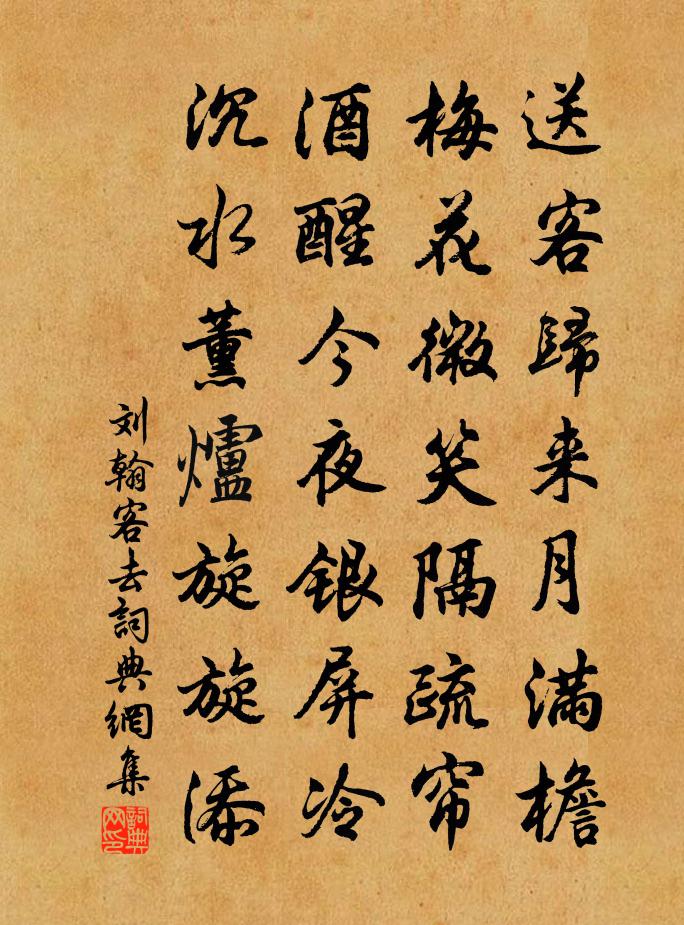 送客歸来月满檐
梅花微笑隔疏帘
酒醒今夜银屏冷
沉水薰爐旋旋添
刘翰客去詞典網集
詞典
网印